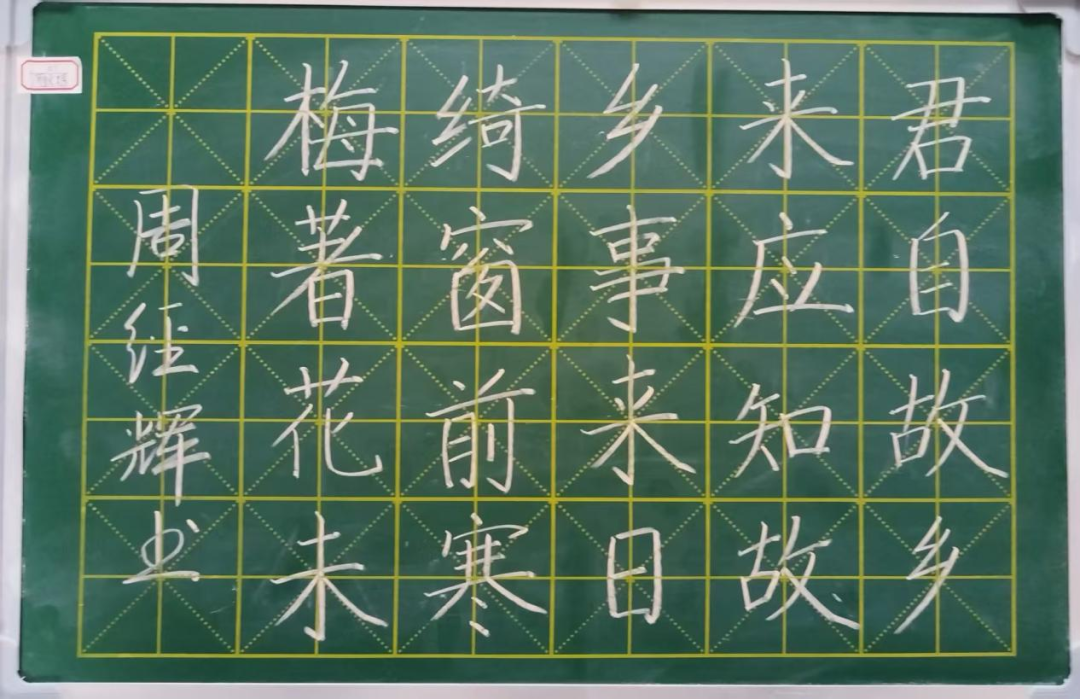 君自故乡
来应知故
乡事来日
绮窗前寒
梅著花未
周经辉书